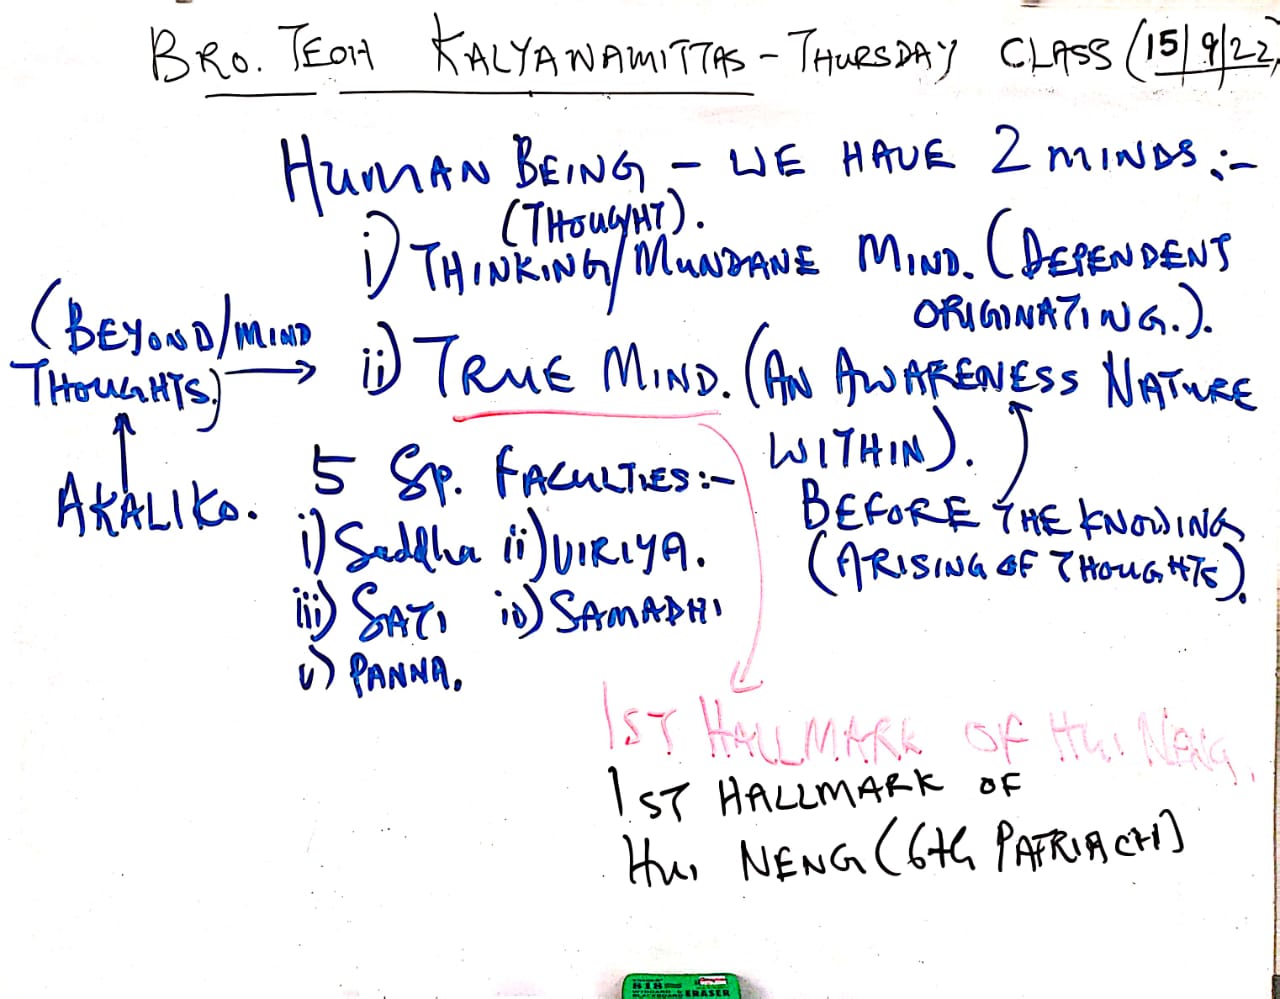 BRO. TEOH KALYANAMITTAS - THURSDAY CLASS (15/9/22)
HUMAN BEING - WE HAVE 2 MINDS :-
(THOUGHT).
i) THINKING/MUNDANE MIND. (DEPENDENT
ORIGINATING.).
(BEYOND/MIND
THOUGHTS.) → ii) TRUE MIND. (AN AWARENESS NATURE
WITHIN).
AKALIKO.
5 Sp. FACULTIES:-
i) Saddha ii) VIRIYA.
iii) SATI iv) SAMADHI
v) PANNA.
BEFORE THE KNOWING
(ARISING OF THOUGHTS).
1ST HALLMARK OF HUI NENG.
1ST HALLMARK OF
HUI NENG (6th PATRIACH)
818
ERASER